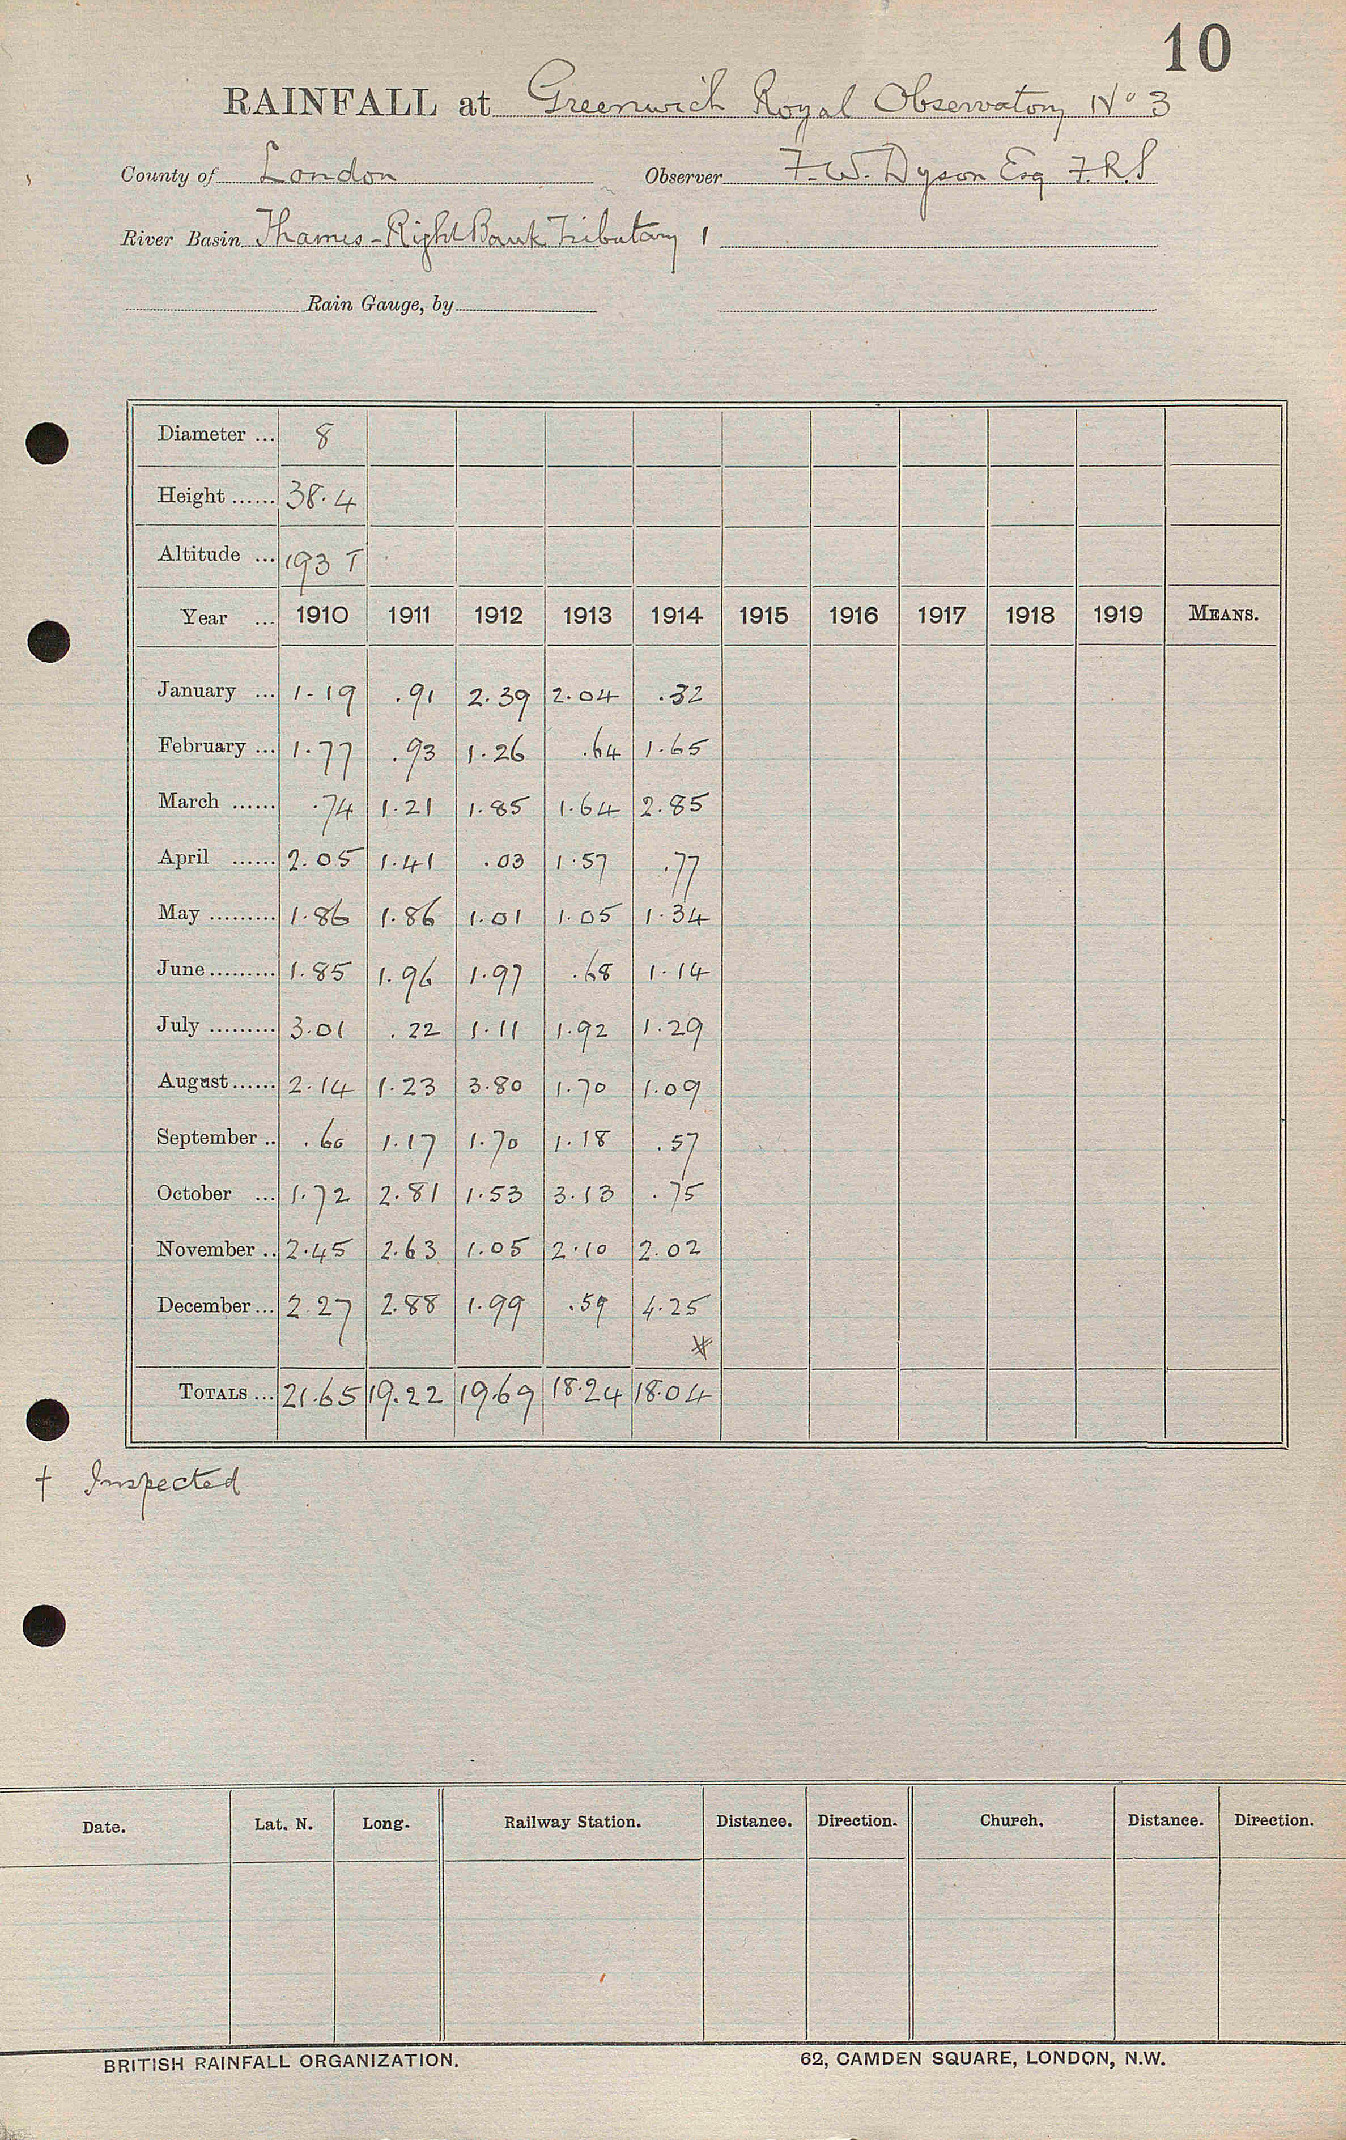 10
RAINFALL at Greenwich Royal Observatory No 3
County of London Observer F. W. Dyson Esq F.R.S
River Basin Thames - Right Bank Tributary 1
Rain Gauge, by
Diameter ... 8
Height ...... 38.4
Altitude ... 193 T
Year ... 1910 1911 1912 1913 1914 1915 1916 1917 1918 1919 MEANS.
January ... 1.19 .91 2.39 2.04 .32
February ... 1.77 .93 1.26 .64 1.65
March ...... .74 1.21 1.85 1.64 2.85
April ...... 2.05 1.41 .03 1.57 .77
May ......... 1.86 1.86 1.01 1.05 1.34
June ......... 1.85 1.96 1.97 .68 1.14
July ......... 3.01 .22 1.11 1.92 1.29
August ...... 2.14 1.23 3.80 1.70 1.09
September .. .60 1.17 1.70 1.18 .57
October ... 1.72 2.81 1.53 3.13 .75
November .. 2.45 2.63 1.05 2.10 2.02
December ... 2.27 2.88 1.99 .59 4.25
TOTALS ... 21.65 19.22 19.69 18.24 18.04
† Inspected
Date. Lat. N. Long. Railway Station. Distance. Direction. Church. Distance. Direction.
BRITISH RAINFALL ORGANIZATION. 62, CAMDEN SQUARE, LONDON, N.W.